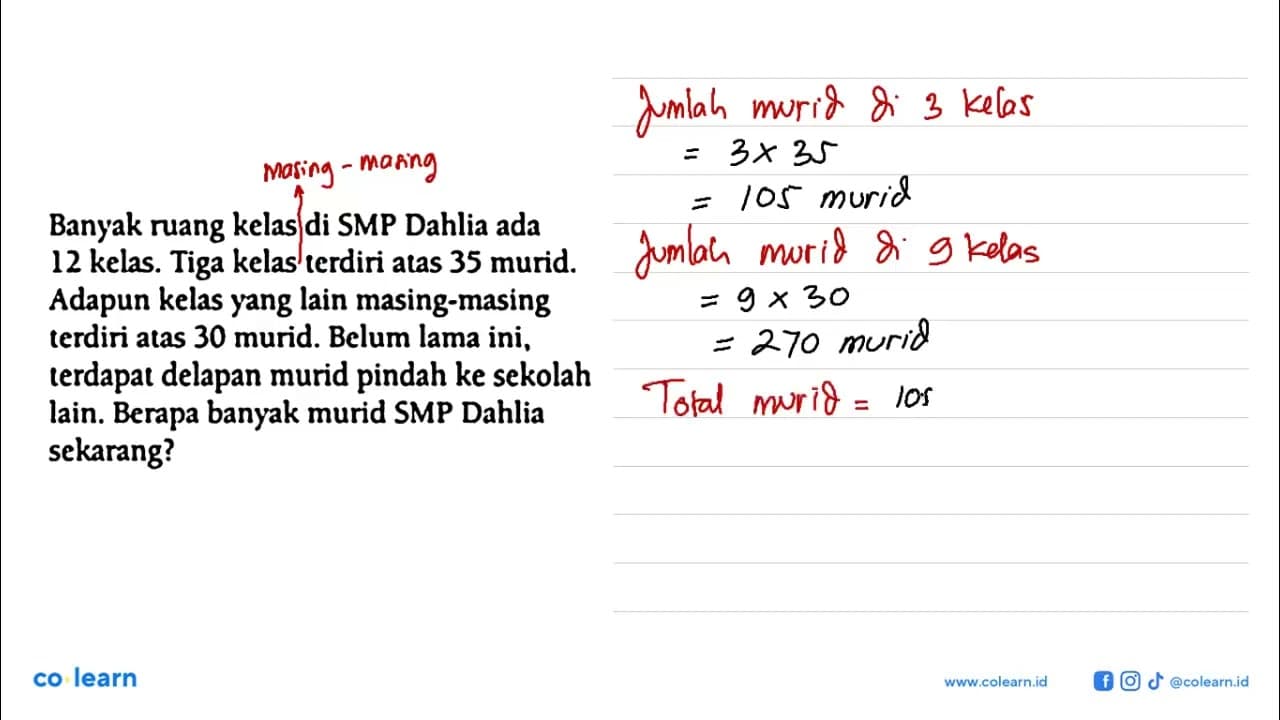 masing-masing
Banyak ruang kelas di SMP Dahlia ada
12 kelas. Tiga kelas terdiri atas 35 murid.
Adapun kelas yang lain masing-masing
terdiri atas 30 murid. Belum lama ini,
terdapat delapan murid pindah ke sekolah
lain. Berapa banyak murid SMP Dahlia
sekarang?
Jumlah murid di 3 kelas
= 3 × 35
= 105 murid
Jumlah murid di 9 kelas
= 9 × 30
= 270 murid
Total murid = 105
co learn
www.colearn.id
@colearn.id